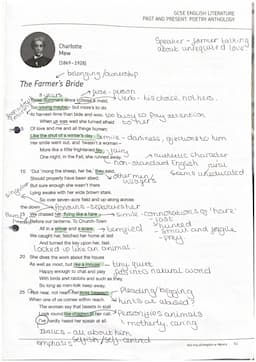 GCSE ENGLISH LITERATURE
PAST AND PRESENT: POETRY ANTHOLOGY
Charlotte
Mew
(1869–1928)
Speaker - farmer talking
about unrequited love
belonging/ownership
The Farmer's Bride
3 years
tense - person
verb - his choice, not hers.
Three Summers since I chose a maid,
Too young maybe – but more's to do
At harvest-time than bide and woo.
too busy to pay attention
to her
When us was wed she turned afraid
5 Of love and me and all things human;
Like the shut of a winter's day
simile - darkness,
Her smile went out, and 'twasn't a woman –
More like a little frightened fay.
fairy
One night, in the Fall, she runned away.
authentic character
non-standard English
seems uneducated
10 'Out 'mong the sheep, her be,' they said,
other men/
villagers
Should properly have been abed;
But sure enough she wasn't there
Lying awake with her wide brown stare.
So over seven-acre field and up-along across
the down
15 We chased her, flying like a hare
simile - connotations of 'hare'
- fast
- hunted
- small and fragile
- prey
Before our lanterns. To Church-Town
All in a shiver and a scare
terrified
We caught her, fetched her home at last
And turned the key upon her, fast.
locked up like an animal
20 She does the work about the house
As well as most, but like a mouse:
tiny, quiet
Happy enough to chat and play
fits into natural world
With birds and rabbits and such as they,
So long as men-folk keep away.
25 'Not near, not near!' her eyes beseech
Pleading/begging
When one of us comes within reach.
hints at abused?
The women say that beasts in stall
Look round like children at her call.
Personifies animals
motherly, caring
I've hardly heard her speak at all.
Italics - all about him,
emphasis
selfish/self-centred